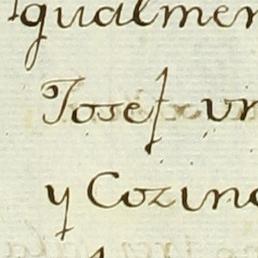 Igualmen
Josef un
y Cozina